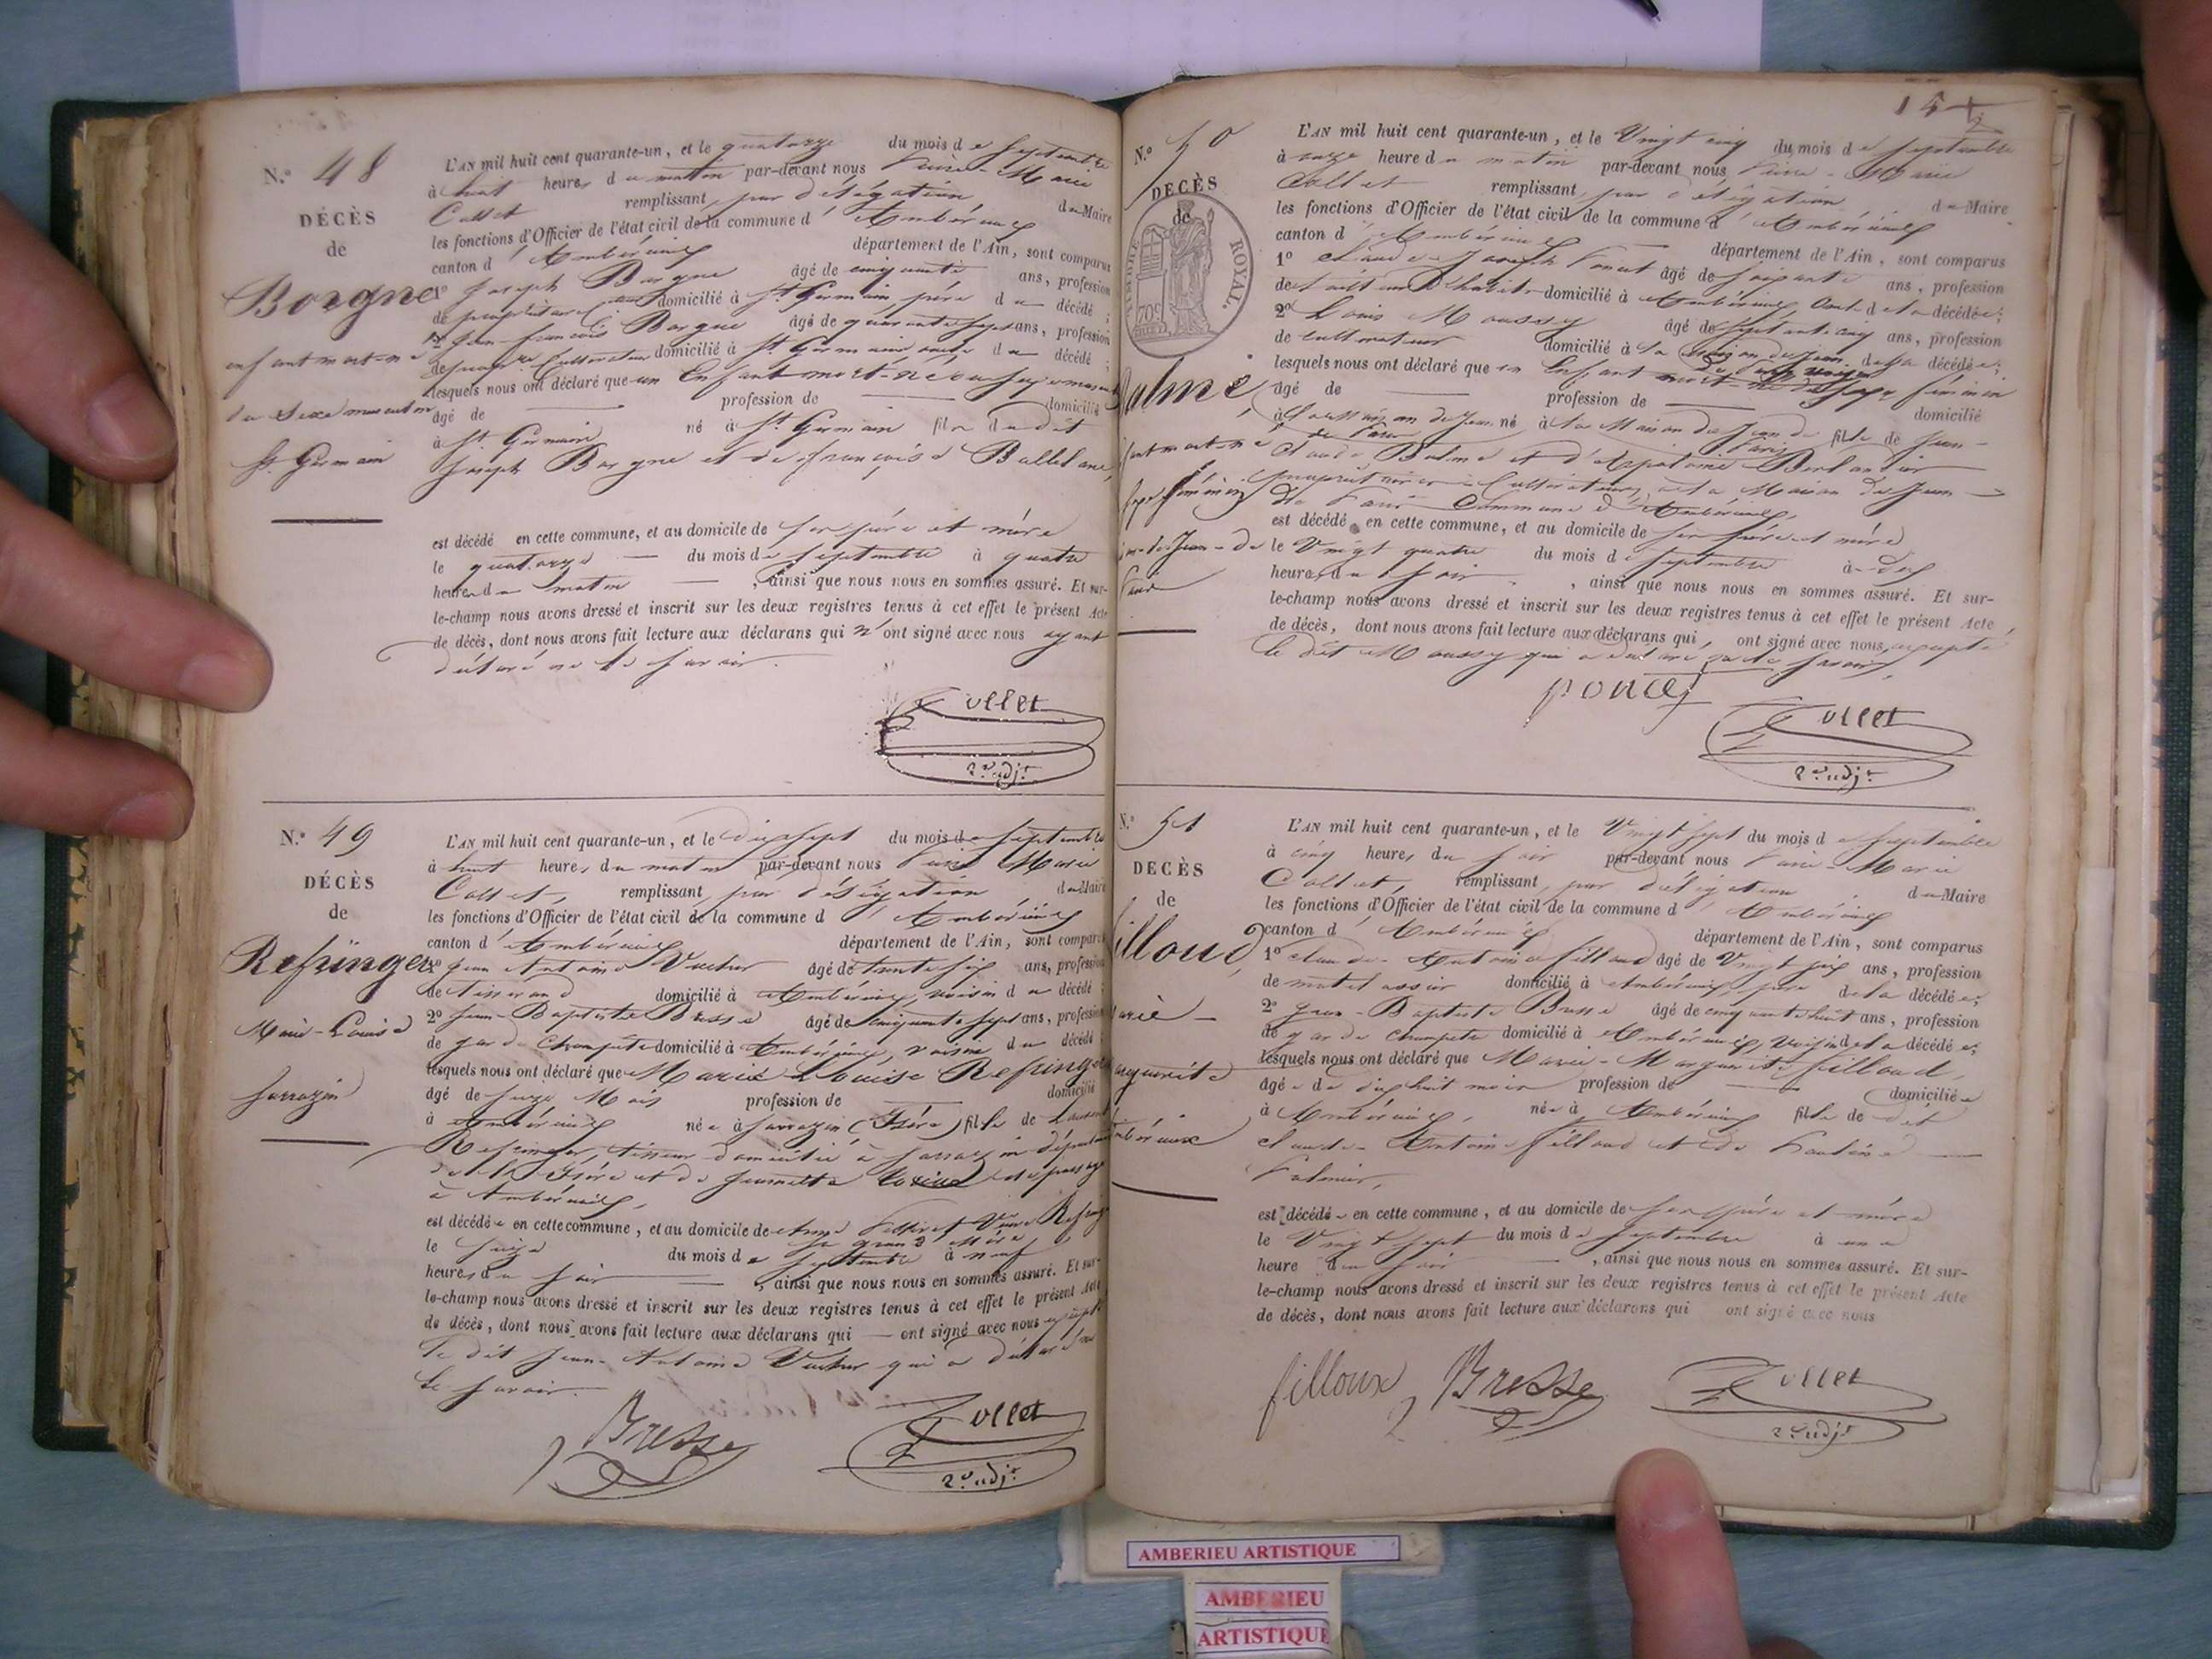 N.º 48
DÉCÈS
de
Borgne
enfant mort-né
du Sexe masculin
St Germain
L'AN mil huit cent quarante-un, et le quatorze du mois de Septembre
à huit heures du matin par-devant nous Pierre-Marie
Collet remplissant par délégation du Maire
les fonctions d'Officier de l'état civil de la commune d'Ambérieux
canton d'Ambérieux département de l'Ain, sont comparus
1º Joseph Borgne âgé de cinquante ans, profession
de propriétaire domicilié à St Germain père du décédé;
2º Jean françois Borgne âgé de quarante sept ans, profession
de cultivateur domicilié à St Germain du décédé;
lesquels nous ont déclaré que un Enfant mort-né du sexe masculin
âgé de profession de domicilié
à St Germain né à St Germain fils du dit
Joseph Borgne et de françoise Ballet
est décédé en cette commune, et au domicile de ses père et mère
le quatorze du mois de Septembre à quatre
heures du matin, ainsi que nous nous en sommes assuré. Et sur-
le-champ nous avons dressé et inscrit sur les deux registres tenus à cet effet le présent Acte
de décès, dont nous avons fait lecture aux déclarans qui n'ont signé avec nous ayant
déclaré ne le savoir.
Collet
2e adjt
N.º 49
DÉCÈS
de
Refsinger
Marie-Louise
Sarrazin
L'AN mil huit cent quarante-un, et le dix sept du mois de Septembre
à huit heures du matin par-devant nous Pierre Marie
Collet, remplissant par délégation du Maire
les fonctions d'Officier de l'état civil de la commune d'Ambérieux
canton d'Ambérieux département de l'Ain, sont comparus
1º Jean Antoine Vucher âgé de trente six ans, profession
de tisserand domicilié à Ambérieux, voisin du décédé;
2º Jean-Baptiste Bresse âgé de cinquante sept ans, profession
de garde Champêtre domicilié à Ambérieux, voisin du décédé;
lesquels nous ont déclaré que Marie Louise Refsinger
âgé de Mois profession de domicilié
à Ambérieux née à Sarrazin (Isère) fille de
Refsinger, tisseur domicilié à Sarrazin
de l'Isère et de Jeannette de passage
à Ambérieux,
est décédée en cette commune, et au domicile de
sa grand Mère
le seize du mois de Septembre à neuf
heures du soir, ainsi que nous nous en sommes assuré. Et sur-
le-champ nous avons dressé et inscrit sur les deux registres tenus à cet effet le présent Acte
de décès, dont nous avons fait lecture aux déclarans qui ont signé avec nous excepté
le dit Jean-Antoine Vucher qui a déclaré
le savoir.
Bresse
Collet
2e adjt
15
N.º 50
DECÈS
de
TIMBRE ROYAL.
Balme
L'AN mil huit cent quarante-un, et le Vingt cinq du mois de Septembre
à onze heure du matin par-devant nous Pierre-Marie
Collet remplissant par délégation du Maire
les fonctions d'Officier de l'état civil de la commune d'Ambérieux
canton d'Ambérieux département de l'Ain, sont comparus
1º Claude-Joseph Poncet âgé de soixante ans, profession
de tailleur d'habits domicilié à Ambérieux, de la décédée;
2º Louis Moussy âgé de septante cinq ans, profession
de cultivateur domicilié à la Maison de Jean de la décédée;
lesquels nous ont déclaré que un Enfant mort né du sexe féminin
âgé de profession de domicilié
à la Maison de Jean né à la Maison de Jean de fille de Jean-
Claude Balme et d'
propriétaires cultivateurs, à la Maison de Jean
Commune d'Ambérieux,
est décédé en cette commune, et au domicile de ses père et mère
le Vingt quatre du mois de Septembre à dix
heures du soir, ainsi que nous nous en sommes assuré. Et sur-
le-champ nous avons dressé et inscrit sur les deux registres tenus à cet effet le présent Acte
de décès, dont nous avons fait lecture aux déclarans qui ont signé avec nous, excepté
le dit Moussy qui a déclaré ne le savoir.
poncet
Collet
2e adjt
N.º 51
DECÈS
de
illoud
arie-
arguerite
mbérieux
L'AN mil huit cent quarante-un, et le Vingt Sept du mois de Septembre
à cinq heures du soir par-devant nous Pierre-Marie
Collet, remplissant par délégation du Maire
les fonctions d'Officier de l'état civil de la commune d'Ambérieux
canton d'Ambérieux département de l'Ain, sont comparus
1º Claude-Antoine filloud âgé de Vingt six ans, profession
de matelassier domicilié à Ambérieux, père de la décédée;
2º Jean-Baptiste Bresse âgé de cinquante huit ans, profession
de garde champêtre domicilié à Ambérieux, voisin de la décédée;
lesquels nous ont déclaré que Marie-Marguerite filloud,
âgée de dix huit mois profession de domiciliée
à Ambérieux, née à Ambérieux fille de dit
Claude-Antoine filloud et de
est décédée en cette commune, et au domicile de ses père et mère
le Vingt Sept du mois de Septembre à une
heure du soir, ainsi que nous nous en sommes assuré. Et sur-
le-champ nous avons dressé et inscrit sur les deux registres tenus à cet effet le présent Acte
de décès, dont nous avons fait lecture aux déclarans qui ont signé avec nous
filloux
Bresse
Collet
2e adjt
AMBERIEU ARTISTIQUE
AMBERIEU
ARTISTIQUE